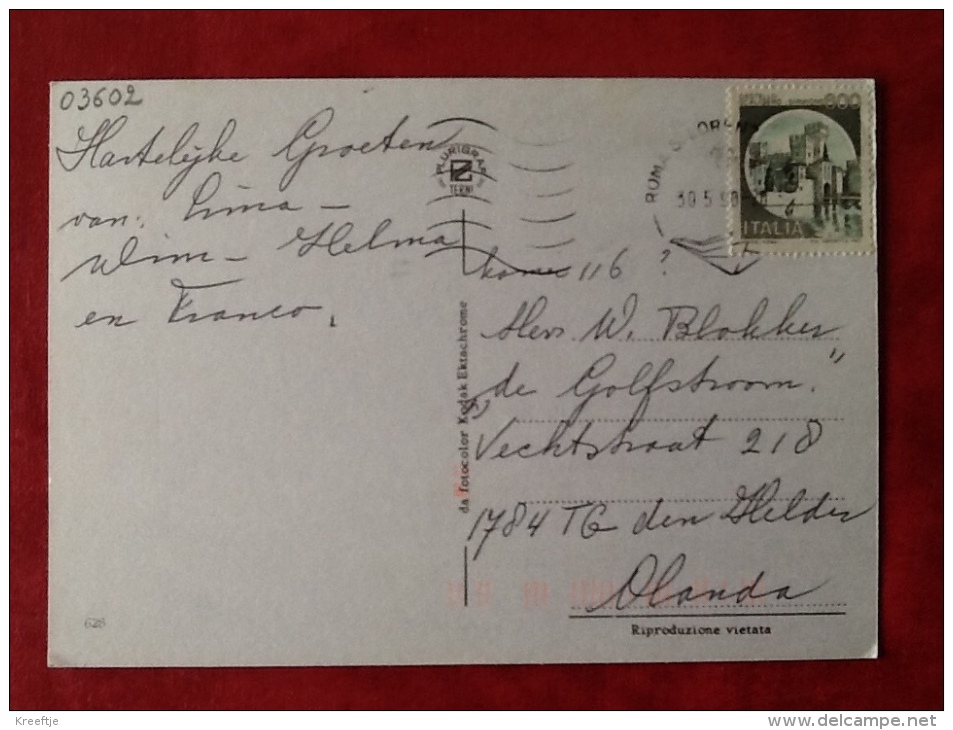 03602
Hartelijke Groeten
van: Lima -
Wim - Helma
en Franco.
PLURIGRAF
TERNI
ROMA
30.5
600
ITALIA
kamer 116 ?
Herr W. Blokker
"de Golfstroom."
Vechtstraat 218
1784 TG den Helder
Olanda
Riproduzione vietata
da fotocolor Kodak Ektachrome
628
Kreeftje
www.delcampe.net